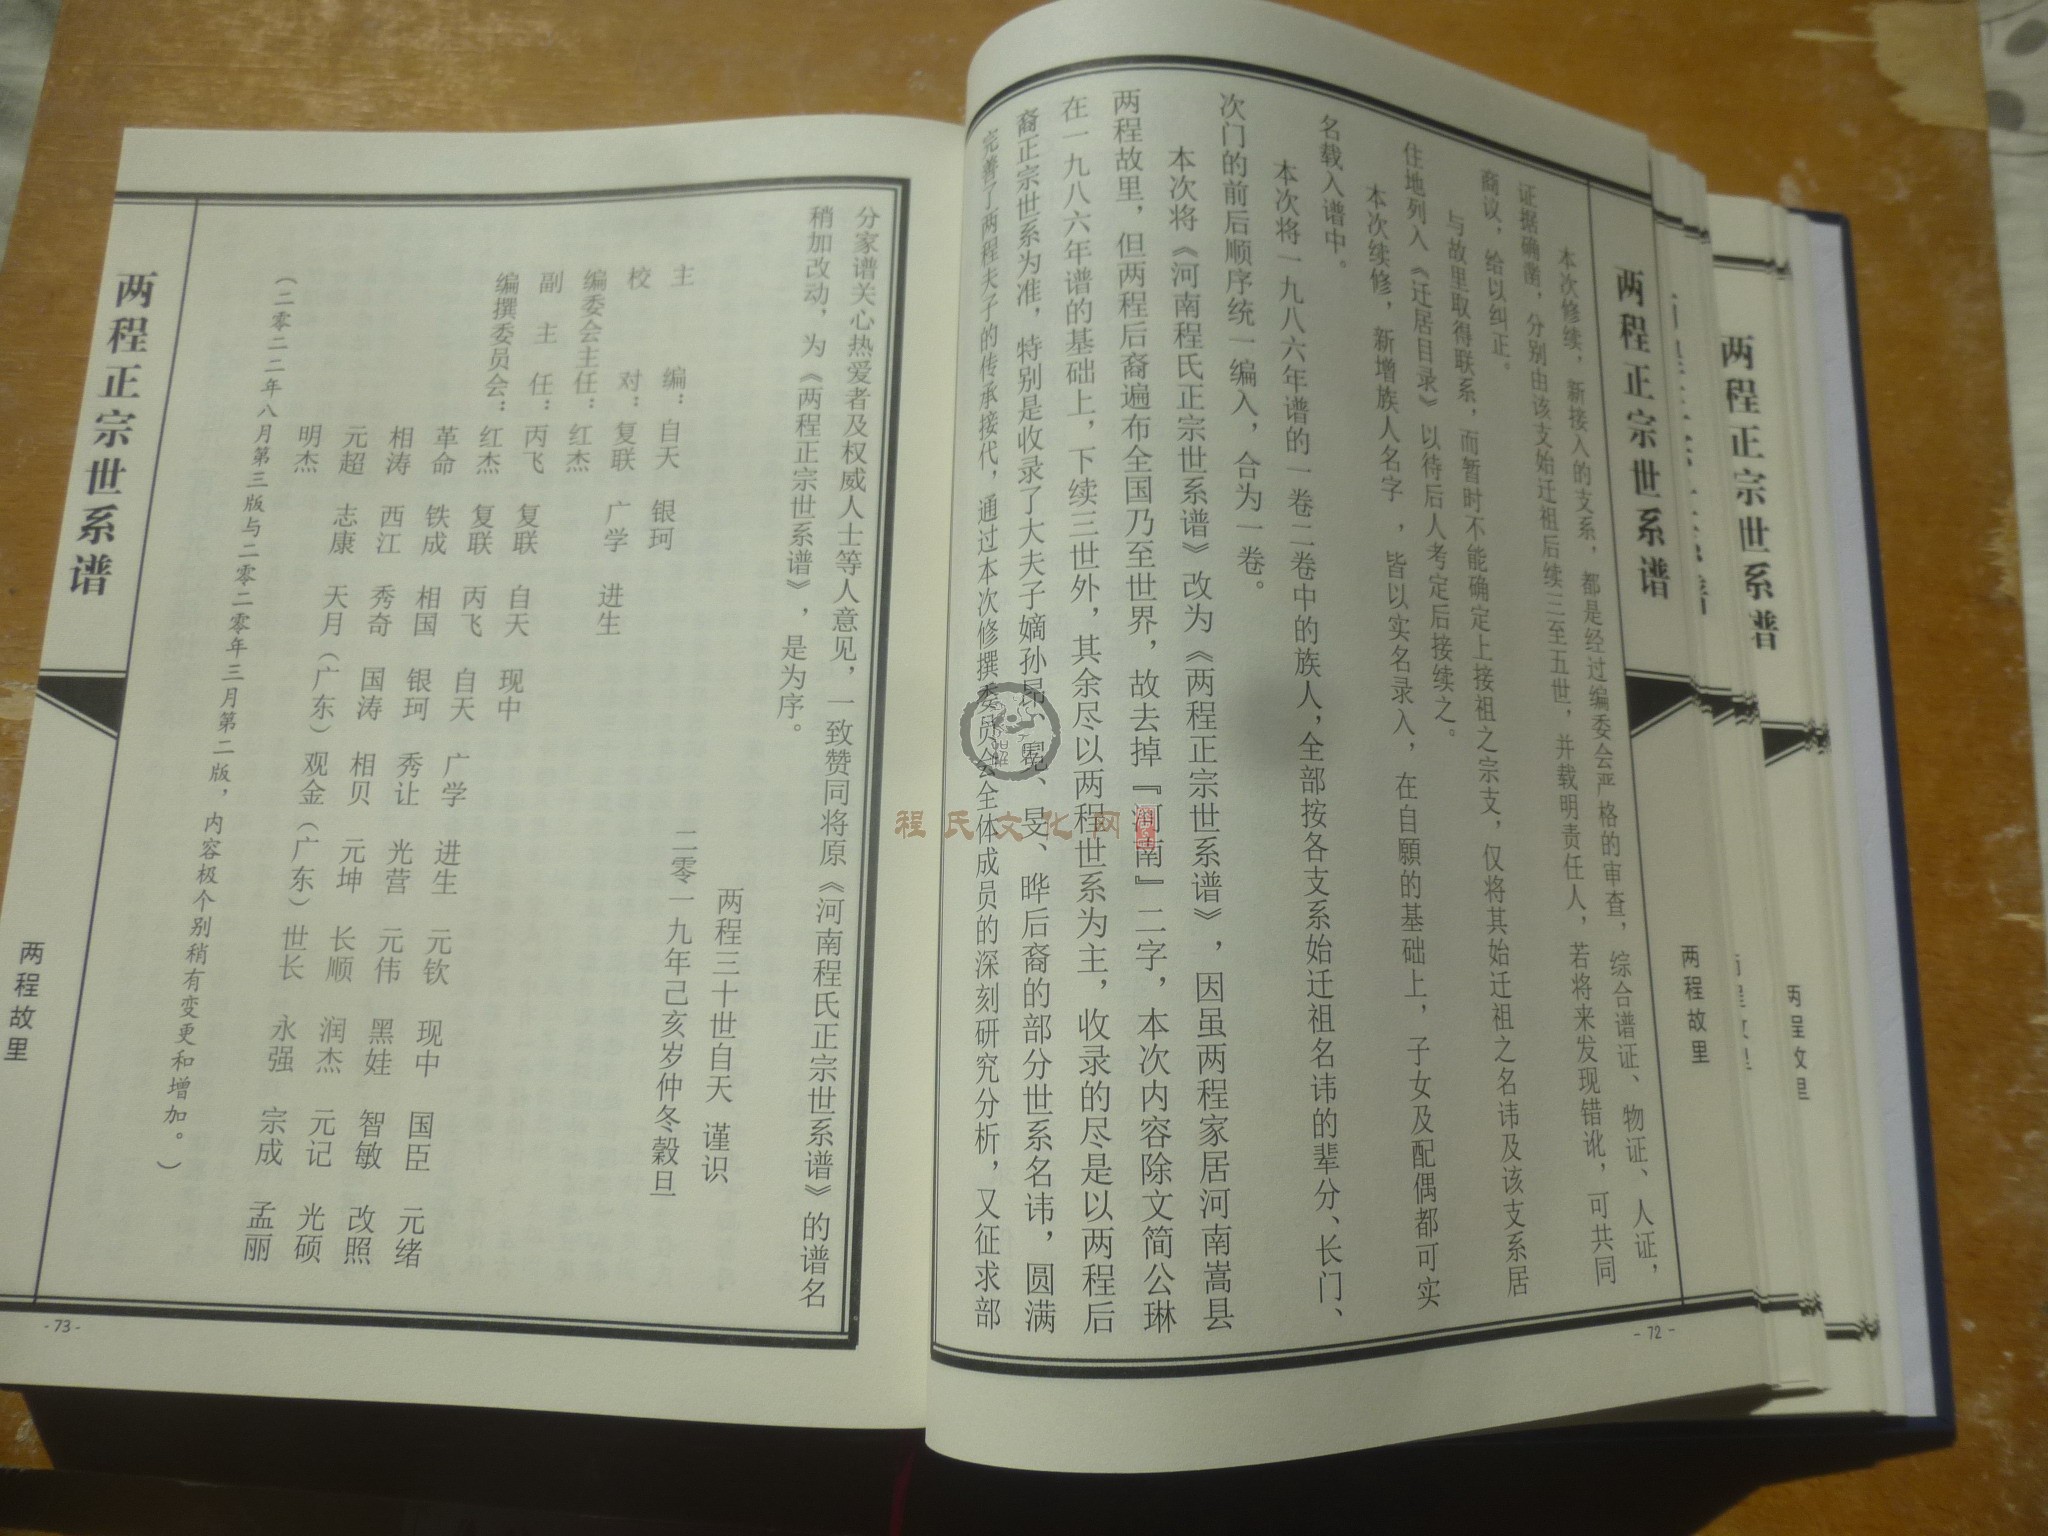 两程正宗世系谱
两程故里
本次修续，新接入的支系，都是经过编委会严格的审查，综合谱证、物证、人证，
证据确凿，分别由该支始迁祖后续三至五世，并载明责任人，若将来发现错讹，可共同
商议，给以纠正。
与故里取得联系，而暂时不能确定上接祖之宗支，仅将其始迁祖之名讳及该支系居
住地列入《迁居目录》以待后人考定后接续之。
本次续修，新增族人名字，皆以实名录入，在自願的基础上，子女及配偶都可实
名载入谱中。
本次将一九八六年谱的一卷二卷中的族人，全部按各支系始迁祖名讳的辈分、长门、
次门的前后顺序统一编入，合为一卷。
本次将《河南程氏正宗世系谱》改为《两程正宗世系谱》，因虽两程家居河南嵩县
两程故里，但两程后裔遍布全国乃至世界，故去掉『河南』二字，本次内容除文简公琳
在一九八六年谱的基础上，下续三世外，其余尽以两程世系为主，收录的尽是以两程后
裔正宗世系为准，特别是收录了大夫子嫡孙昂、冕、旻、晔后裔的部分世系名讳，圆满
完善了两程夫子的传承接代，通过本次修撰委员会全体成员的深刻研究分析，又征求部
- 72 -
分家谱关心热爱者及权威人士等人意见，一致赞同将原《河南程氏正宗世系谱》的谱名
稍加改动，为《两程正宗世系谱》，是为序。
两程三十世自天 谨识
二零一九年己亥岁仲冬穀旦
主 编：自天 银珂
校 对：复联 广学 进生
编委会主任：红杰
副 主 任：丙飞 复联 自天 现中
编撰委员会：红杰 复联 丙飞 自天 广学 进生 元钦 现中 国臣 元绪
革命 铁成 相国 银珂 秀让 光营 元伟 黑娃 智敏 改照
相涛 西江 秀奇 国涛 相贝 元坤 长顺 润杰 元记 光硕
元超 志康 天月（广东）观金（广东）世长 永强 宗成 孟丽
明杰
（二零二二年八月第三版与二零二零年三月第二版，内容极个别稍有变更和增加。）
两程正宗世系谱
两程故里
- 73 -
两程正宗世系谱
两程故里
程氏文化网